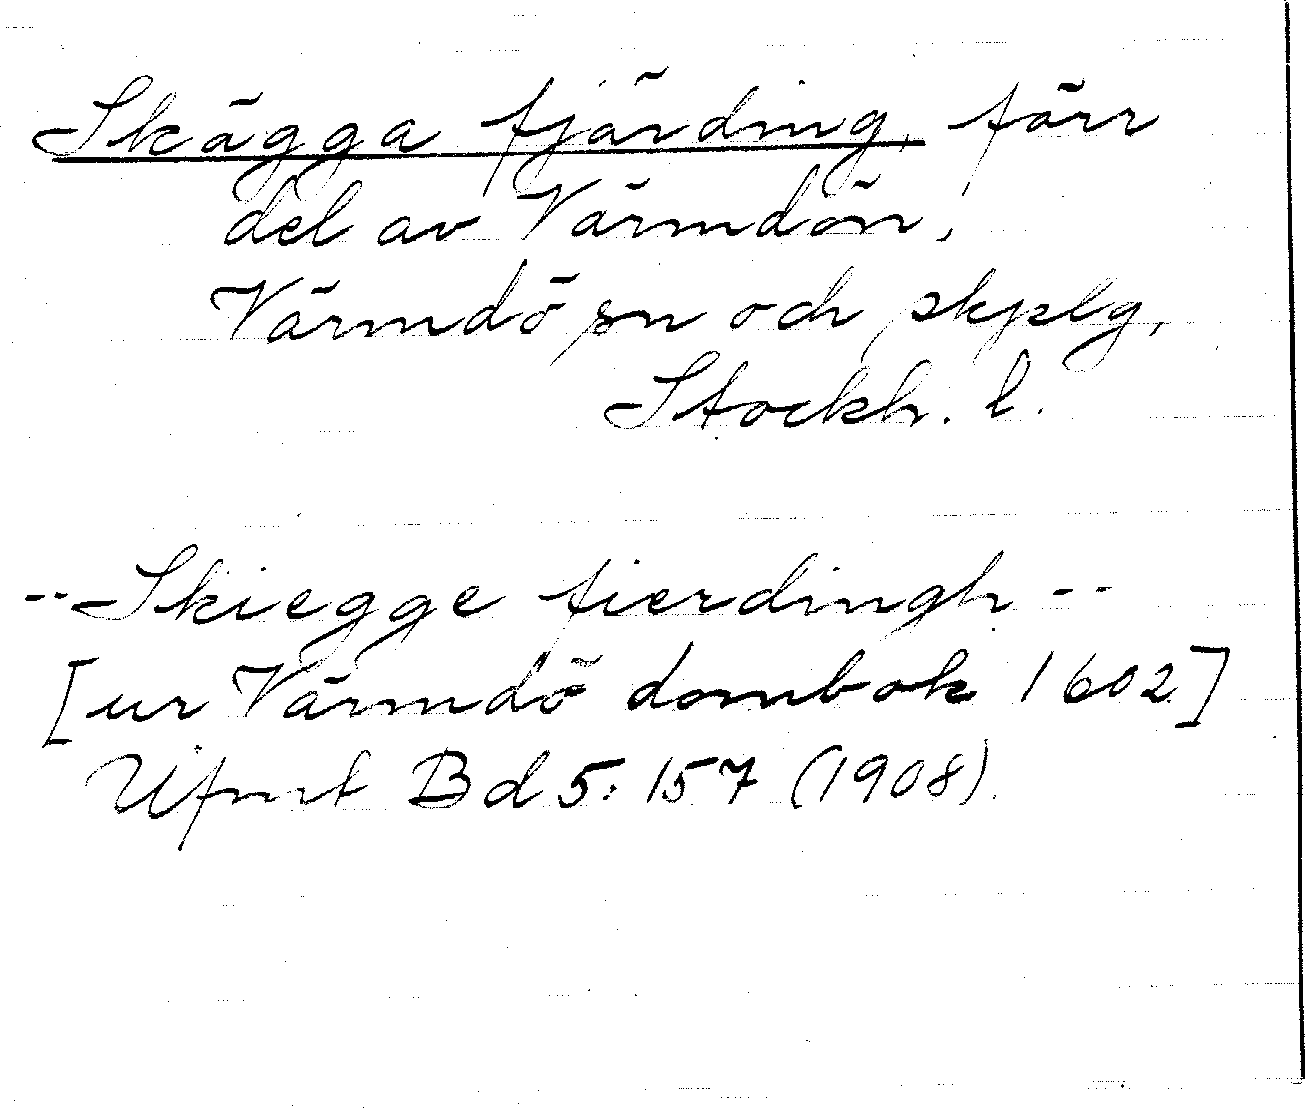 Skägga fjärding, förr
del av Värmdön,
Värmdö sn och skplg,
Stockh. l.
-- Skiegge fierdingh --
[ur Värmdö dombok 1602]
Ufmt Bd 5: 157 (1908)